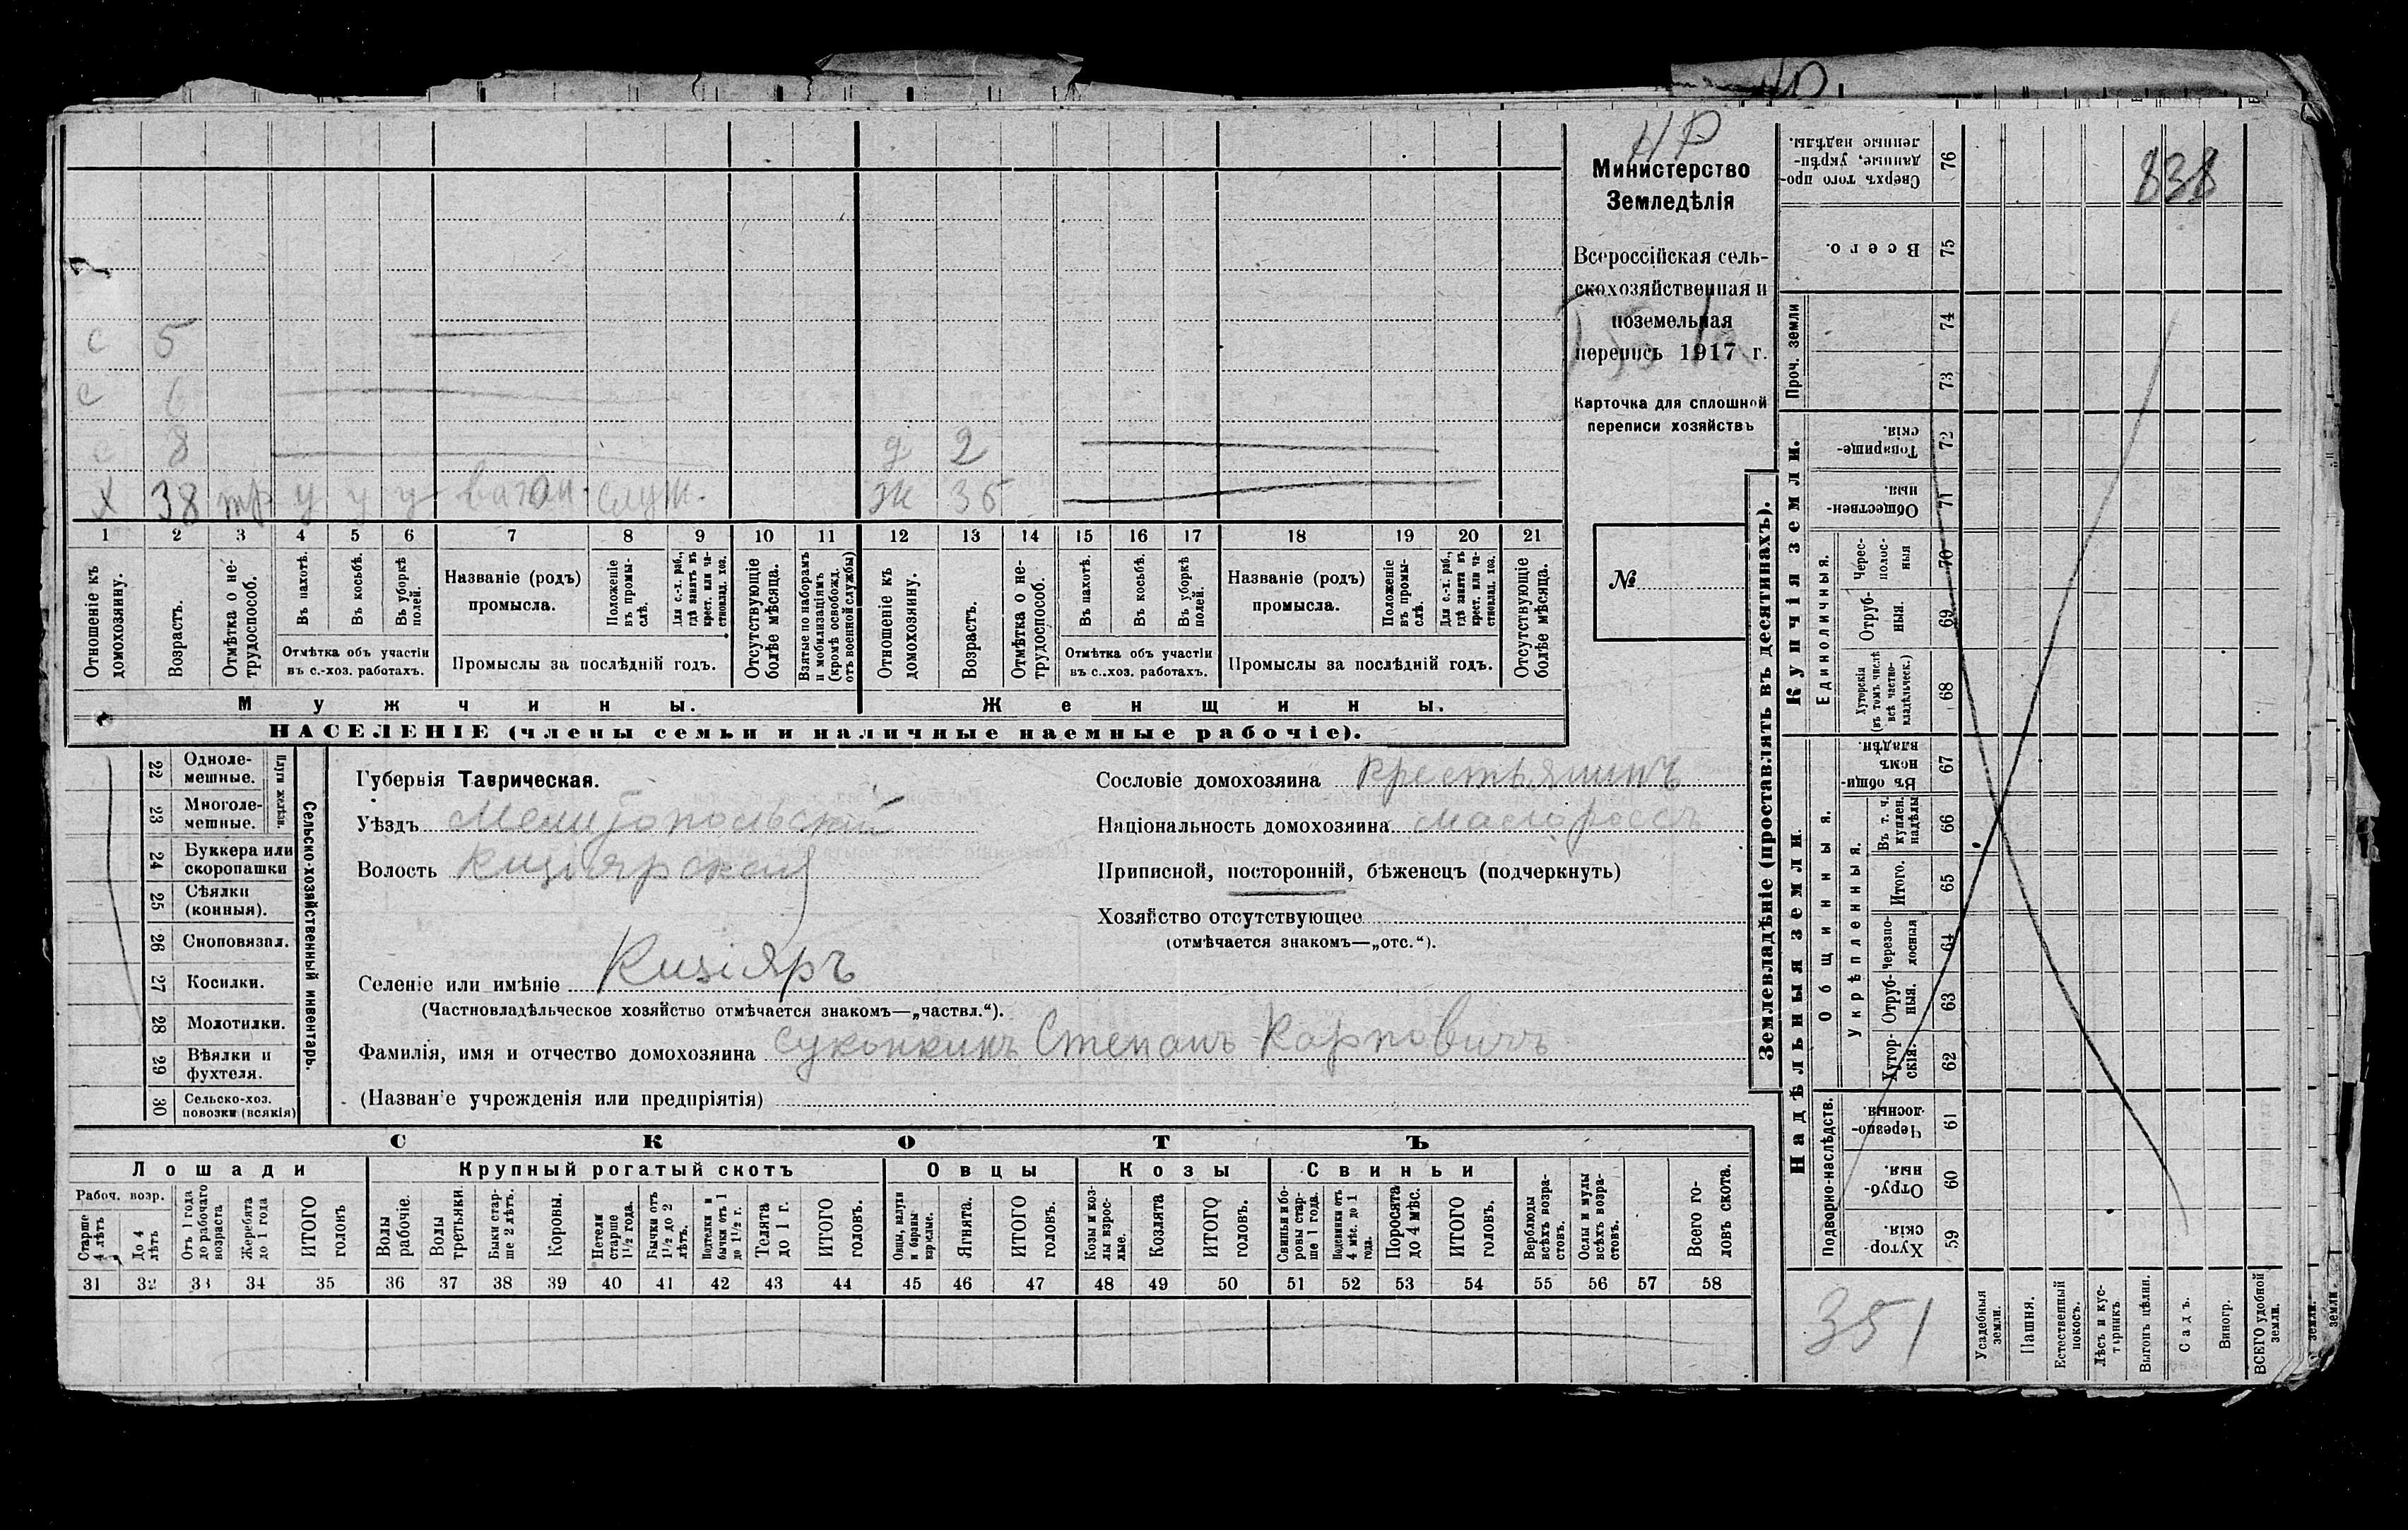 НР
Министерство
Земледѣлія
Всероссійская сель-
скохозяйственная и
поземельная
перепись 1917 г.
Карточка для сплошной
переписи хозяйствъ
№
с 5
с 6
с 8
д 2
х 38 тр у у у вагон. служ.
ж 35
1 2 3 4 5 6 7 8 9 10 11 12 13 14 15 16 17 18 19 20 21
Отношеніе къ домохозяину.
Возрастъ.
Отмѣтка о не-трудоспособ.
Въ пахотѣ.
Въ косьбѣ.
Въ уборкѣ полей.
Отмѣтка объ участіи
въ с.-хоз. работахъ.
Названіе (родъ)
промысла.
Положеніе въ промы-слѣ.
Для с.-х. раб., гдѣ занятъ въ крест. или ча-стновлад. хоз.
Промыслы за послѣдній годъ.
Отсутствующіе болѣе мѣсяца.
Взятые по наборамъ и мобилизаціямъ (кромѣ освобожд. отъ военной службы)
Отношеніе къ домохозяину.
Возрастъ.
Отмѣтка о не-трудоспособ.
Въ пахотѣ.
Въ косьбѣ.
Въ уборкѣ полей.
Отмѣтка объ участіи
въ с.-хоз. работахъ.
Названіе (родъ)
промысла.
Положеніе въ промы-слѣ.
Для с.-х. раб., гдѣ занята въ крест. или ча-стновлад. хоз.
Промыслы за послѣдній годъ.
Отсутствующіе болѣе мѣсяца.
Мужчины.
Женщины.
НАСЕЛЕНІЕ (члены семьи и наличные наемные рабочіе).
22 Одноле-мешные.
23 Многоле-мешные.
Плуги желѣзн.
24 Буккера или скоропашки
25 Сѣялки (конныя).
26 Сноповязал.
27 Косилки.
28 Молотилки.
29 Вѣялки и фухтеля.
30 Сельско-хоз. повозки (всякія)
Сельско-хозяйственный инвентарь.
Губернія Таврическая.
Уѣздъ Мелитопольскій
Волость Кизіярская
Селеніе или имѣніе Кизіяръ
(Частновладѣльческое хозяйство отмѣчается знакомъ—„частвл.“).
Фамилія, имя и отчество домохозяина Суконкинъ Степанъ Карповичъ
(Названіе учрежденія или предпріятія)
Сословіе домохозяина крестьянинъ
Національность домохозяина малороссъ
Приписной, посторонній, бѣженецъ (подчеркнуть)
Хозяйство отсутствующее
(отмѣчается знакомъ—„отс.“).
СКОТЪ
Лошади
Крупный рогатый скотъ
Овцы
Козы
Свиньи
Рабоч. возр.
Старше 4 лѣтъ
До 4 лѣтъ
Отъ 1 года до рабочаго возраста
Жеребята до 1 года
ИТОГО головъ
Волы рабочіе.
Волы третьяки.
Быки стар-ше 2 лѣтъ.
Коровы.
Нетели старше 1½ года.
Бычки отъ 1½ до 2 лѣтъ.
Подтелки и бычки отъ 1 до 1½ г.
Телята до 1 г.
ИТОГО головъ.
Овцы, валухи и бараны взрослые.
Ягнята.
ИТОГО головъ.
Козы и коз-лы взрос-лые.
Козлята
ИТОГО головъ.
Свиньи и бо-ровы стар-ше 1 года.
Подсвинки отъ 4 мѣс. до 1 года.
Поросята до 4 мѣс.
ИТОГО головъ.
Верблюды всѣхъ возра-стовъ.
Ослы и мулы всѣхъ возра-стовъ.
Всего го-ловъ скота.
31 32 33 34 35 36 37 38 39 40 41 42 43 44 45 46 47 48 49 50 51 52 53 54 55 56 57 58
Землевладѣніе (проставлять въ десятинахъ).
Надѣльныя земли.
Купчія земли.
Проч. земли
Подворно-наслѣдств.
Общинныя.
Укрѣпленныя.
Единоличныя.
Сверхъ того про-данные, укрѣп-ленные надѣлы. 76
Всего. 75
74
73
Товарище-скія. 72
Обществен-ныя. 71
Черес-полос-ныя 70
Отруб-ныя. 69
Хуторскія (въ томъ числѣ всѣ частно-владѣльческ.) 68
Въ общи-номъ владѣн. 67
Въ т. ч. куплен. надѣлы 66
Итого. 65
Черезпо-лосныя 64
Отруб-ныя. 63
Хутор-скія. 62
Черезпо-лосныя. 61
Отруб-ныя. 60
Хутор-скія. 59
838
351
Усадебныя земли.
Пашня.
Естественный покосъ.
Лѣсъ и кус-тарникъ
Выгонъ цѣлин.
Садъ.
Виногр.
ВСЕГО удобной земли.